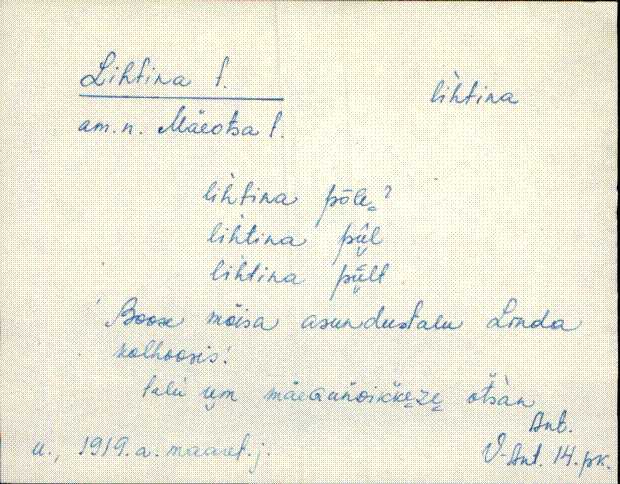 Lihtina t.
lìhtina
am.n. Mäeotsa t.
lìhtina põle̮ʔ
lìhtina pü̮l
lìhtina pü̮lt
Boose mõisa asundustalu Linda
kolhoosis.
talu um mäeGuńoikkeze otsan
Ant.
u., 1919.a. maaref.j.
V-Ant. 14. pk.